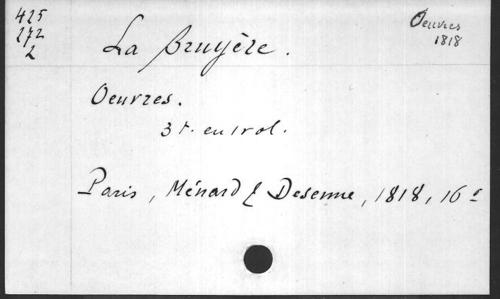 425
272
2
Oeuvres
1818
La Bruyère.
Oeuvres.
3 t. en 1 vol.
Paris, Ménard & Desenne, 1818, 16°